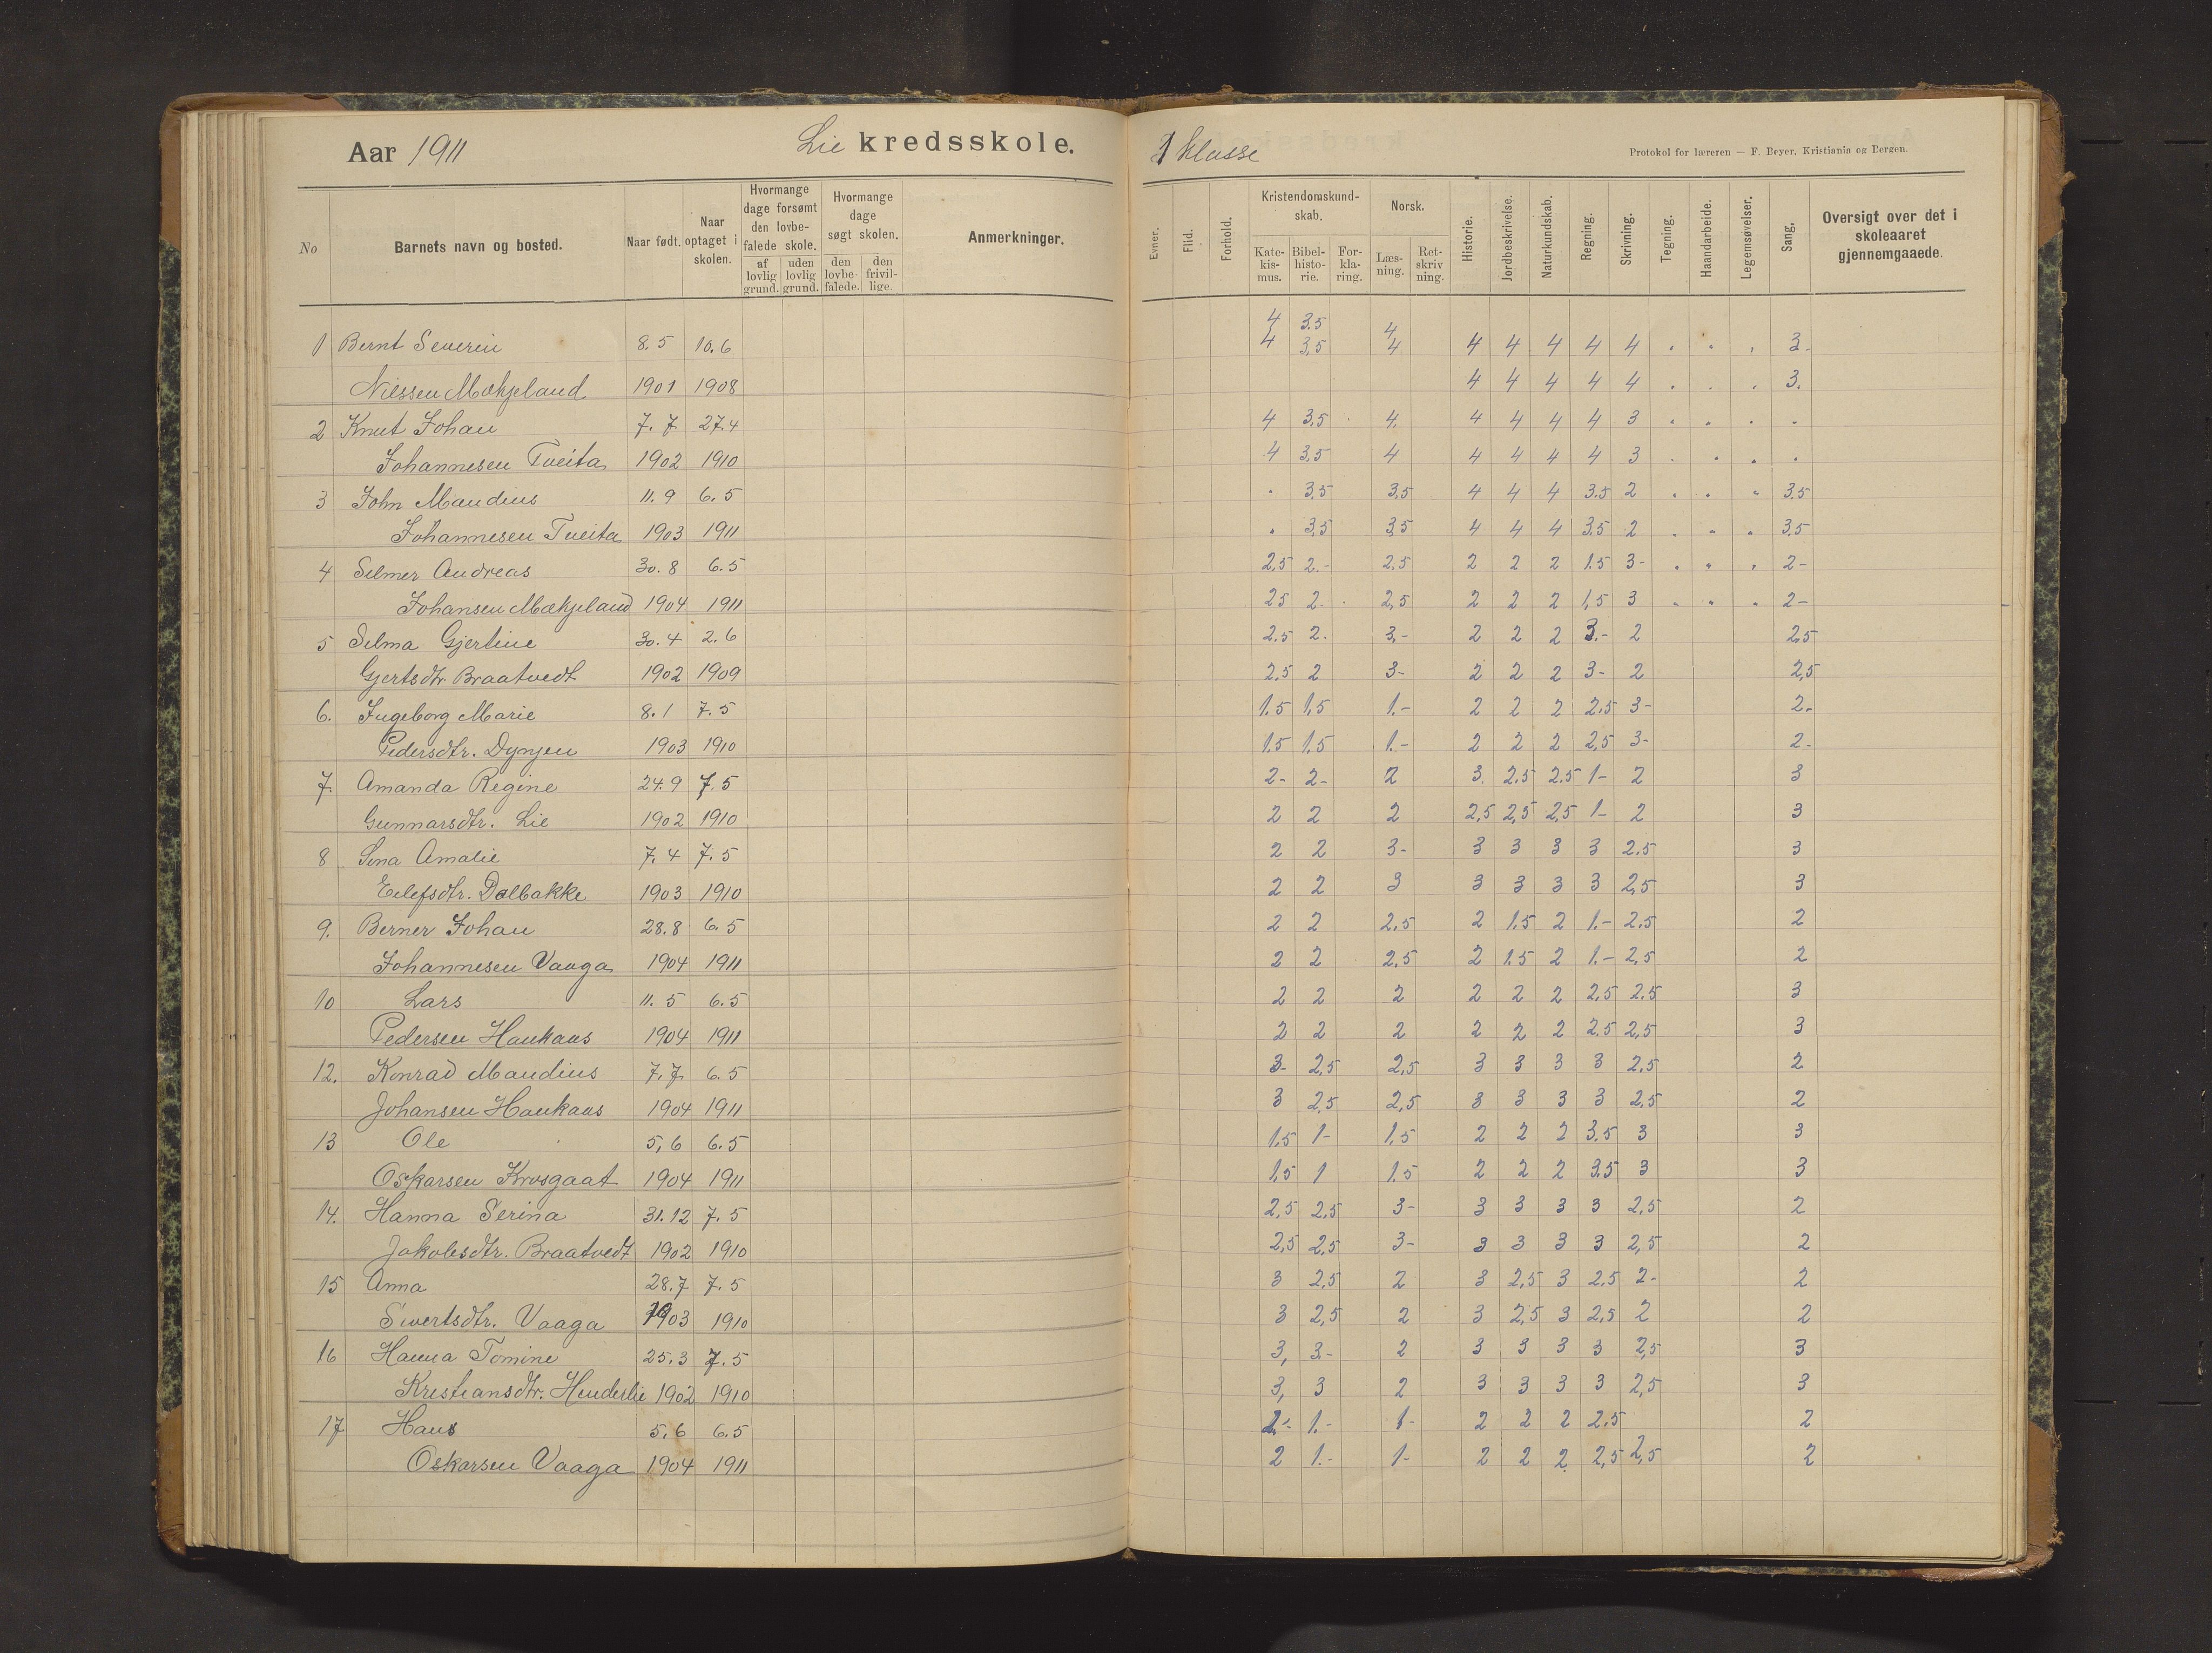 Aar 1911 Lie kredsskole. 1 klasse Protokol for læreren — F. Beyer, Kristiania og Bergen.
No Barnets navn og bosted. Naar født. Naar optaget i skolen. Hvormange dage forsømt den lovbefalede skole. af lovlig grund. uden lovlig grund. Hvormange dage søgt skolen. den lovbefalede. den frivillige. Anmerkninger. Evner. Flid. Forhold. Kristendomskundskab. Katekismus. Bibelhistorie. Forklaring. Norsk. Læsning. Retskrivning. Historie. Jordbeskrivelse. Naturkundskab. Regning. Skrivning. Tegning. Haandarbeide. Legemsøvelser. Sang. Oversigt over det i skoleaaret gjennemgaaede.
4 3.5 4
1 Bernt Severin 8.5 10.6 4 3,5 4 4 4 4 4 4 . . . 3-
Nilssen Mækjeland 1901 1908 4 4 4 4 4 . . . 3.
2 Knut Johan 7.7 27.4 4 3,5 . 4. 4 4 4 4 3 . . . .
Johannesen Tveita 1902 1910 4 3,5 4 4 4 4 4 3 . . . .
3 John Mandius 11.9 6.5 . 3,5 3,5 4 4 4 3.5 2 . . . 3.5
Johannesen Tveita 1903 1911 . 3,5 3,5 4 4 4 3.5 2 . . . 3,5
4 Selmer Andreas 30.8 6.5 2,5 2.- 2,5 2 2 2 1.5 3- . . . 2-
Johansen Mækjeland 1904 1911 25 2. . 2,5 2 2 2 1,5 3 . . . 2-
5 Selma Gjertine 30.4 2.6 2.5 2. 3.- 2 2 2 3.- 2 2,5
Gjertsdtr Braatvedt 1902 1909 2,5 2 3- 2 2 2 3- 2 2,5
6. Ingeborg Marie 8.1 7.5 1.5 1,5 1.- 2 2 2 2.5 3- 2.
Pedersdtr. Dyngen 1903 1910 1.5 1.5 1.- 2 2 2 2,5 3- 2-
7. Amanda Regine 24.9 7.5 2- 2- 2 3. 2.5 2.5 1- 2 3
Gunnarsdtr. Lie 1902 1910 2 2 2 2,5 2,5 2,5 1- 2 3
8 Sina Amalie 7.4 7.5 2 2 3- 3 3 3 3 2.5 3
Eilefsdtr. Dalbakke 1903 1910 2 2 3 3 3 3 3 2,5 3
9. Berner Johan 28.8 6.5 2 2 2,5 2 1.5 2 1.- 2.5 2
Johannesen Vaaga 1904 1911 2 2 2,5 2 1.5 2 1.- 2,5 2
10 Lars 11.5 6.5 2 2 2 2 2 2 2,5 2.5 3
Pedersen Haukaas 1904 1911 2 2 2 2 2 2 2.5 2,5 3
12. Konrad Mandius 7.7 6.5 3- 2,5 2,5 3 3 3 3 2.5 2
Johansen Haukaas 1904 1911 3 2,5 2,5 3 3 3 3 2,5 2
13 Ole 5,6 6.5 1.5 1- 1,5 2 2 2 3.5 3 3
Oskarsen Krosgaat 1904 1911 1,5 1 1.5 2 2 2 3.5 3 3
14. Hanna Serina 31.12 7.5 2,5 2,5 3- 3 3 3 3 2,5 2
Jakobsdtr. Braatvedt 1902 1910 2,5 2,5 3- 3 3 3 3 2,5 2
15 Anna 28.7 7.5 3 2,5 2 3 2,5 3 2.5 2- 2
Sivertsdtr. Vaaga 1903 1910 3 2,5 2 3 2,5 3 2,5 2 2
16 Hanna Tomine 25.3 7.5 3, 3- 2 3 3 3 3 2,5 3
Kristiansdtr. Henderlie 1902 1910 3, 3 2 3 3 3 3 2,5 3
17 Hans 5.6 6.5 2.- 1.- 1- 2 2 2 2.5 2
Oskarsen Vaaga 1904 1911 2 1.- 1- 2 2 2 2,5 2,5 2